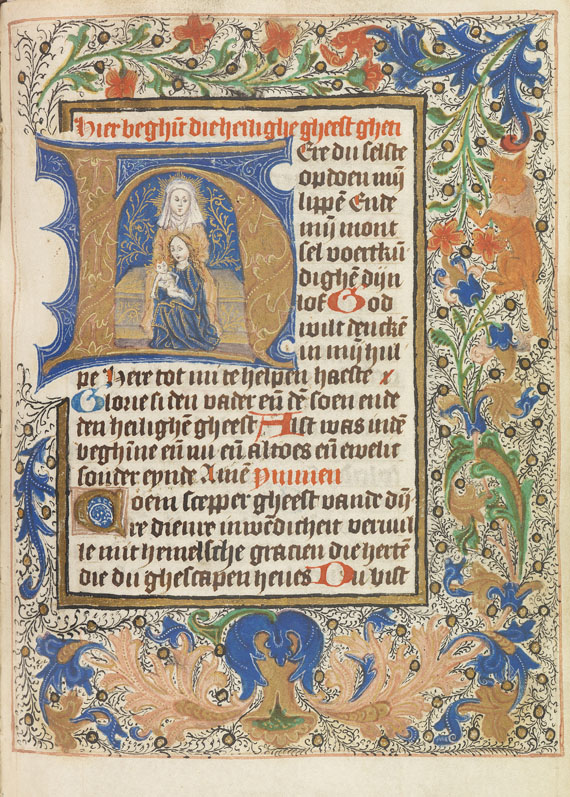 Hier beghīt die heilighe gheest ghetı
HEre du selste
op doen mij
lippē Ende
mij mont
sel voertkū
dighē dijn
lof God
wilt dencke͂
in mij hul
pe Here tot mi te helpen haeste
Glorie si den vader eñ dē soen ende
den heilighē gheest Alst was indē
beghīne eñ nu eñ altoes eñ ewelic
sonder eynde Amē ymnen
Coem scepper gheest vande dīī
re dienre inwēdicheit vervul
le mit hemelsche gracien die hertē
die du ghescapen heves Du bist